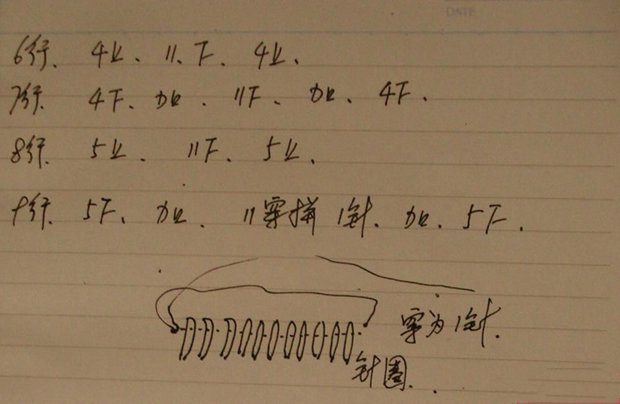 DATE
6行、4上、11下、4上、
7行、4下、加、11下、加、4下、
8行、5上、11下、5上、
9行、5下、加、11穿拼1针、加、5下、
穿为1针、
针圈、